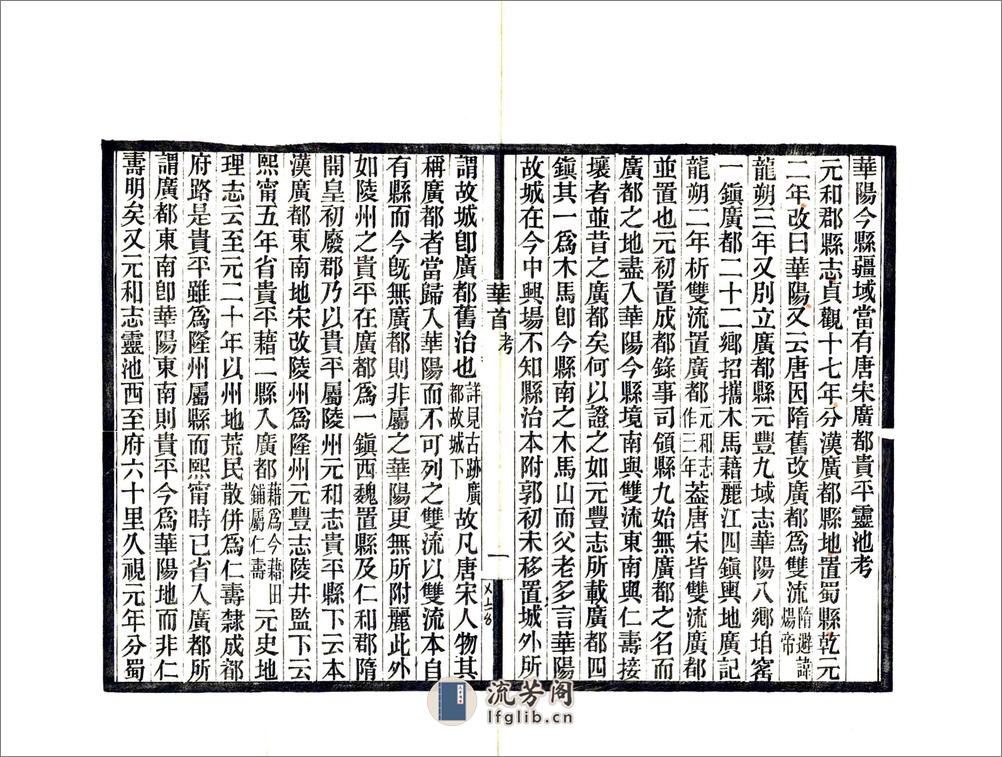 華陽今縣疆域當有唐宋廣都貴平靈池考
元和郡縣志貞觀十七年分漢廣都縣地置蜀縣乾元
二年改曰華陽又云唐因隋舊改廣都為雙流隋避諱煬帝
龍朔三年又別立廣都縣元豐九域志華陽八鄉垍窖
一鎮廣都二十二鄉招攜木馬藉麗江四鎮輿地廣記
龍朔二年析雙流置廣都元和志作三年葢唐宋皆雙流廣都
並置也元初置成都錄事司領縣九始無廣都之名而
廣都之地盡入華陽今縣境南與雙流東南與仁壽接
壤者並昔之廣都矣何以證之如元豐志所載廣都四
鎮其一爲木馬卽今縣南之木馬山而父老多言華陽
故城在今中興場不知縣治本附郭初未移置城外所
華首
考
一
謂故城卽廣都舊治也詳見古跡廣都故城下故凡唐宋人物其
稱廣都者當歸入華陽而不可列之雙流以雙流本自
有縣而今旣無廣都則非屬之華陽更無所附麗此外
如陵州之貴平在廣都爲一鎮西魏置縣及仁和郡隋
開皇初廢郡乃以貴平屬陵州元和志貴平縣下云本
漢廣都東南地宋改陵州爲隆州元豐志陵井監下云
熙甯五年省貴平藉二縣入廣都藉爲今藉田鋪屬仁壽元史地
理志云至元二十年以州地荒民散併爲仁壽隸成都
府路是貴平雖爲隆州屬縣而熙甯時已省入廣都所
謂廣都東南卽華陽東南則貴平今爲華陽地而非仁
壽明矣又元和志靈池西至府六十里久視元年分蜀
流芳阁
lfglib.cn